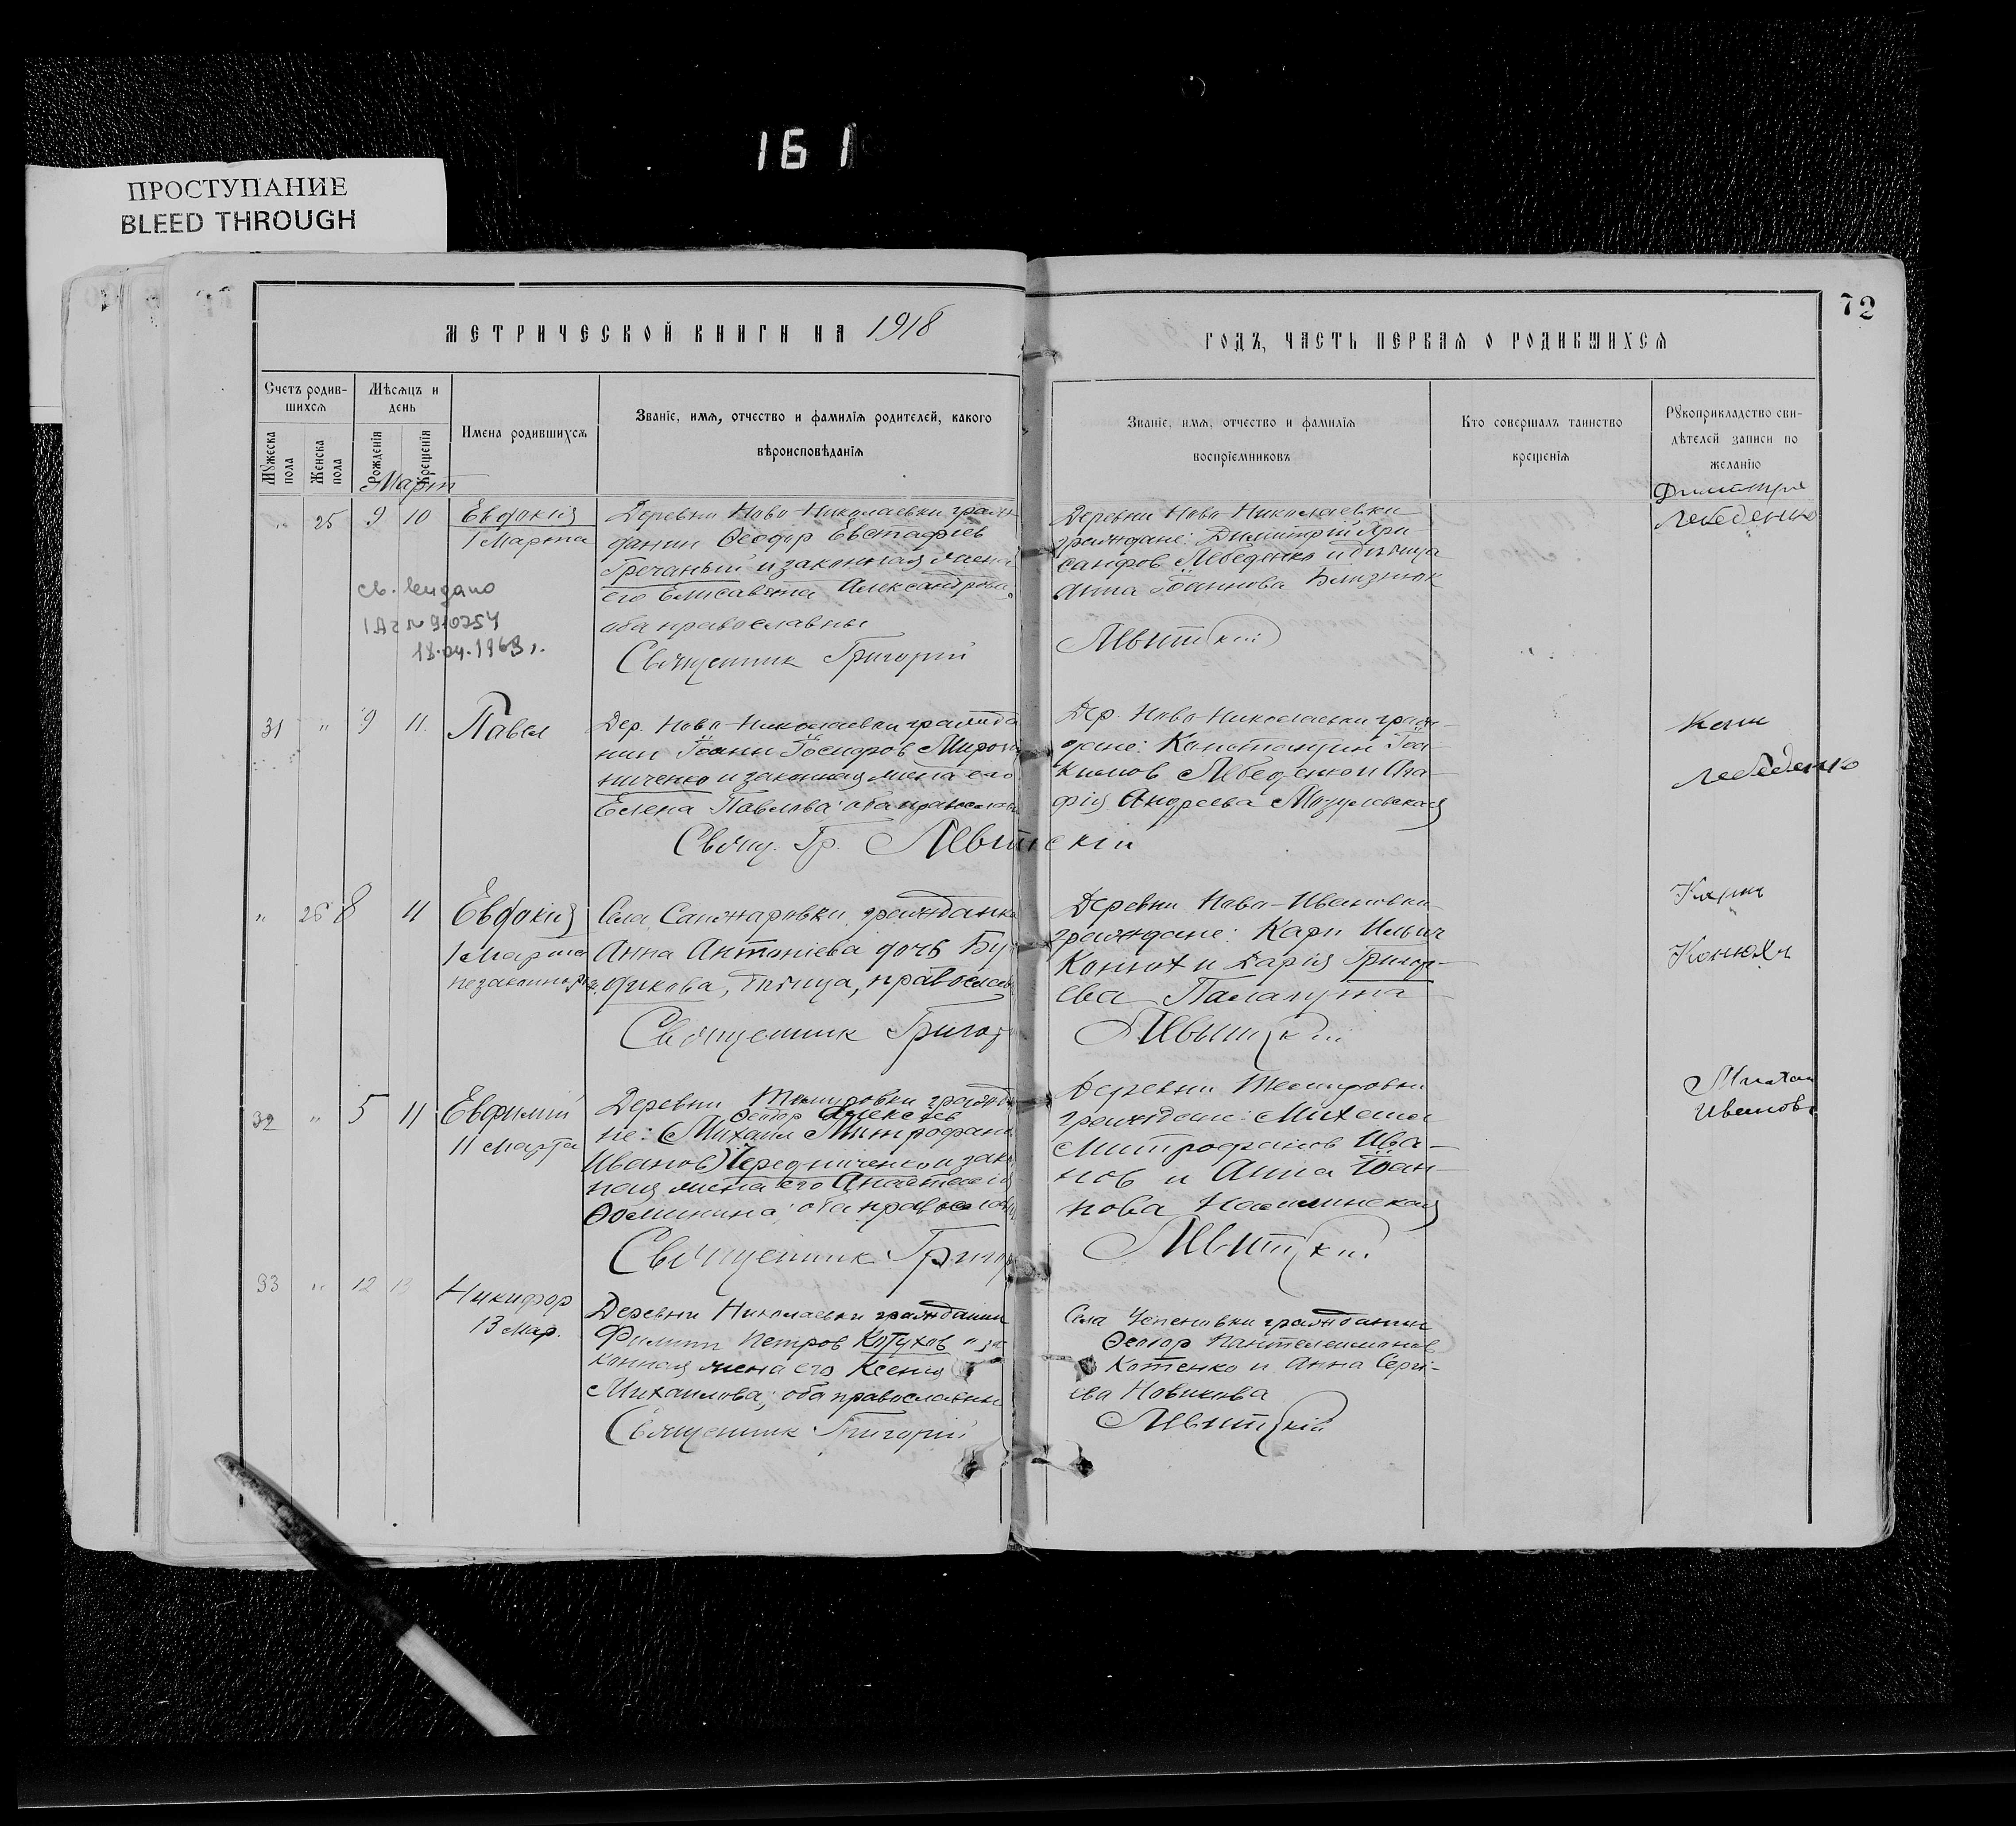 161
ПРОСТУПАНИЕ
BLEED THROUGH
72
МЕТРИЧЕСКОЙ КНИГИ НА 1918
ГОДЪ, ЧАСТЬ ПЕРВАЯ О РОДИВШИХСЯ
Счетъ родив-
шихся
Мѣсяцъ и
день
Имена родившихся
Званіе, имя, отчество и фамилія родителей, какого
вѣроисповѣданія
Мужеска
пола
Женска
пола
Рожденія
Крещенія
Званіе, имя, отчество и фамилія
воспріемниковъ
Кто совершалъ таинство
крещенія
Рукоприкладство сви-
дѣтелей записи по
желанію
Март
" 25 9 10 Евдокія
1 Марта
Деревни Ново-Николаевки граж-
данин Ѳеодор Евстафіев
Гречаный и законная жена
его Елисавета Александрова,
оба православны
Священник Григорій
св.
IАг № 910754
18.04.1968 г.
Деревни Ново-Николаевки
граждане: Димитрій Хри
санфов Лебеденко и дѣвица
Анна Іоаннова Близнюк
Левитскій
Димитрій
Лебеденко
31 " 9 11 Павел
Дер. Ново-Николаевки гражда
нин Іоанн Іосифов Мирош
ниченко и законная жена его
Елена Павлова оба православн
Свящ. Гр. Левитскій
Дер. Ново-Николаевки граж-
дане: Константин Іоа-
кимов Лебеденко и Ага-
фія Андреева Мозулевская
Лебеденко
" 26 8 11 Евдокія
1 Марта
незаконнор.
Села Сапожаровки гражданка
Анна Антоніева дочь Бу
дикова, дѣвица, православ
Священник Григор
Деревни Ново-Ивановки
граждане: Карп Ильич
Конюх и Дарія Григор-
ева
Левитскій
Карп
Конюхъ
32 " 5 11 Евфимій
11 Марта
Деревни Темировки гражда
Ѳеодор Алексѣев
не: (Михаил Митрофан
Иванов) Чередниченко и зако
ная жена его Анастасія
Ѳомина оба православ
Священник Григор
Деревни Темировки
граждане: Михаил
Митрофанов Ива-
нов и Анна Іоан-
нова
Левитскій
Михаил
Иванов
33 " 12 13 Никифор
13 Мар.
Деревни Николаевки гражданин
Филипп Петров Котухов и за
конная жена его Ксенія
Михаилова; оба православны
Священник Григорій
Села Успеновки гражданин
Ѳеодор Пантелеимонов
Котенко и Анна Серги-
ева Новикова
Левитскій